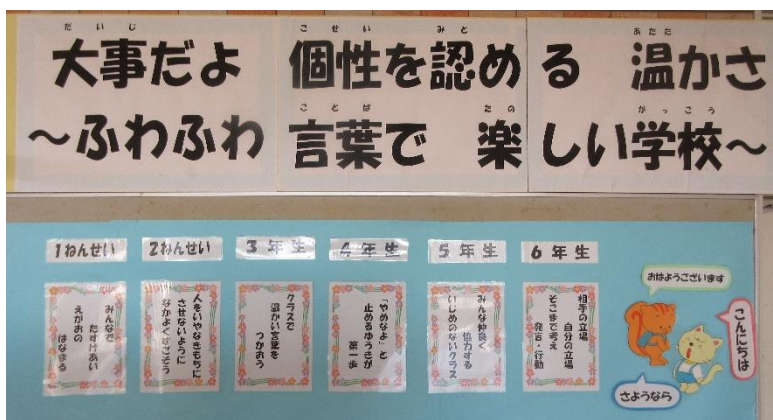 大事だよ 個性を認める 温かさ
～ふわふわ言葉で 楽しい学校～
1ねんせい
みんなで
たすけあい
えがおの
はなまる
2ねんせい
人をいやなきもちに
させないように
なかよくすごそう
3年生
クラスで
温かい言葉を
つかおう
4年生
「やめなよ」と
止めるゆうきが
第一歩
5年生
みんな仲良く
協力する
いじめのないクラス
6年生
相手の立場
自分の立場
そこまで考え
発言・行動
おはようございます
こんにちは
さようなら